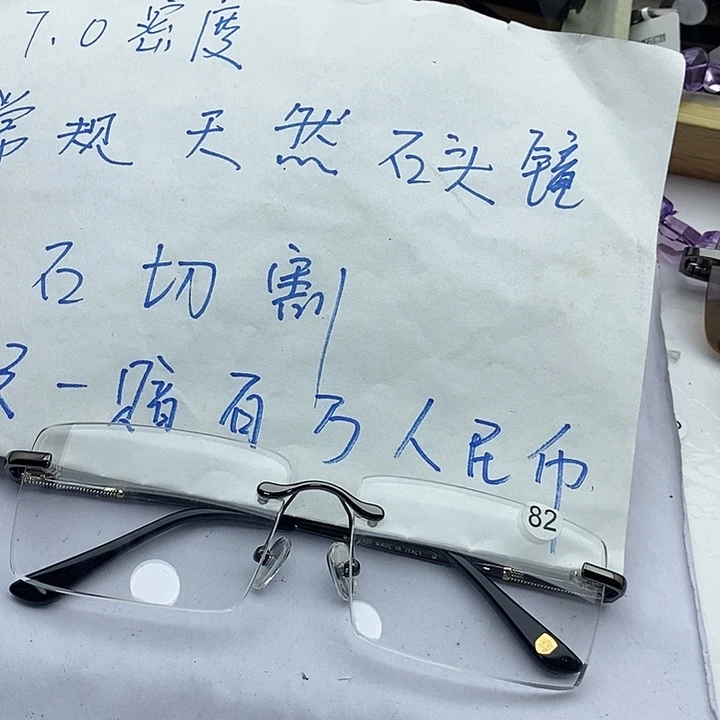 7.0密度
常规天然石头镜
石切割
一赔百万人民币
82
MADE IN ITALY